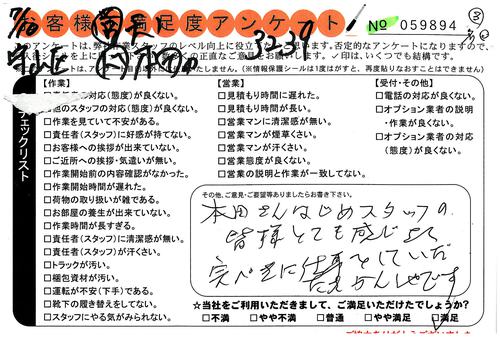 お客様不満足度アンケート
№ 059894
③
7/10
3239
このアンケートは、弊社作業スタッフのレベル向上に役立
思います。否定的なアンケートになりますので、
正直なご意見をお願いします。✓印は、いくつでも結構です。
(※情報保護シールは1度はがすと、再度貼りなおすことはできません)
チェックリスト
【作業】
対応(態度)が良くない。
他のスタッフの対応(態度)が良くない。
□作業を見ていて不安がある。
□責任者(スタッフ)に好感が持てない。
□お客様への挨拶が出来ていない。
□ご近所への挨拶・気遣いが無い。
□作業開始前の内容確認がなかった。
□作業開始時間が遅れた。
□荷物の取り扱いが雑である。
□お部屋の養生が出来ていない。
□作業時間が長すぎる。
□責任者(スタッフ)に清潔感が無い。
□責任者(スタッフ)が汗くさい。
□トラックが汚い。
□梱包資材が汚い。
□運転が不安(下手)である。
□靴下の履き替えをしてない。
□スタッフにやる気がみられない。
【営業】
□見積もり時間に遅れた。
□見積もり時間が長い。
□営業マンに清潔感が無い。
□営業マンが煙草くさい。
□営業マンが汗くさい。
□営業態度が良くない。
□営業の説明と作業が一致してない。
【受付・その他】
□電話の対応が良くない。
□オプション業者の説明
・作業が良くない。
□オプション業者の対応
(態度)が良くない。
その他、ご意見・ご要望等ありましたらお書き下さい。
本田さんはじめスタッフの
皆様とても感じよく
完ぺきに仕事をしていただ
たきかんしゃです
☆当社をご利用いただきまして、ご満足いただけたでしょうか?
□不満 □やや不満 □普通 □やや満足 ☑満足